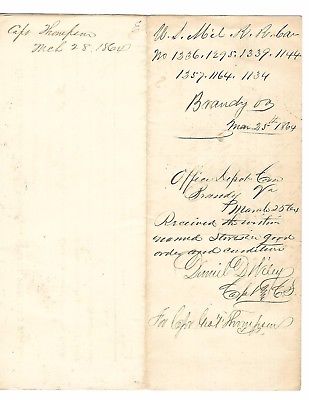 Capt Thompson
Mch 28. 1864
U. S. Mil R. R. Car
No 1336. 1295. 1339. 1144
1357. 1164. 1134
Brandy
Mar. 25th 1864
Office Depot Com
Brandy Va
March 25th
Received the within
named Stores in good
order and condition
Daniel D Wiley
Capt & C.S.
For Capt Geo Thompson